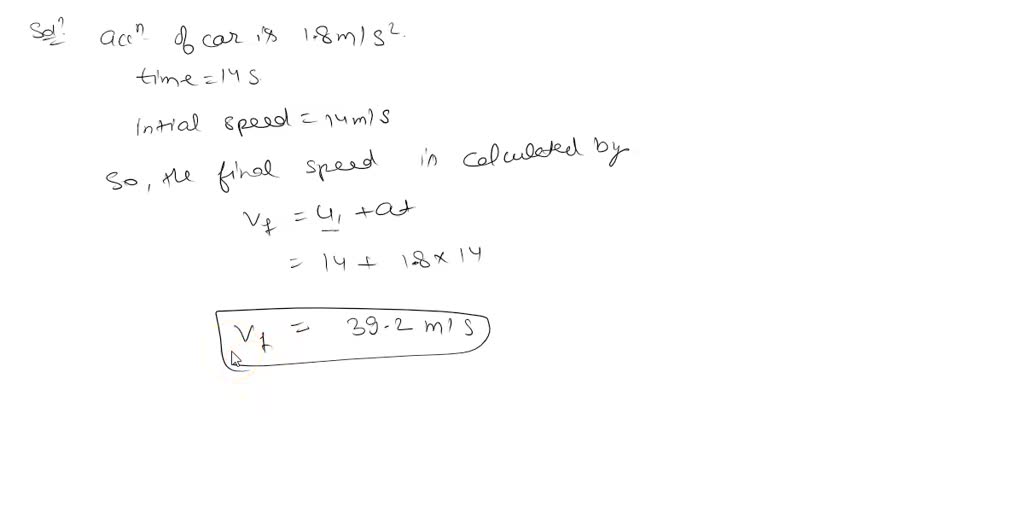 Solⁿ accⁿ of car is 1.8 m/s².
time = 14 s
Intial speed = 14 m/s
So, the final speed is calculated by
Vf = u, + at
= 14 + 1.8 × 14
Vf = 39.2 m/s